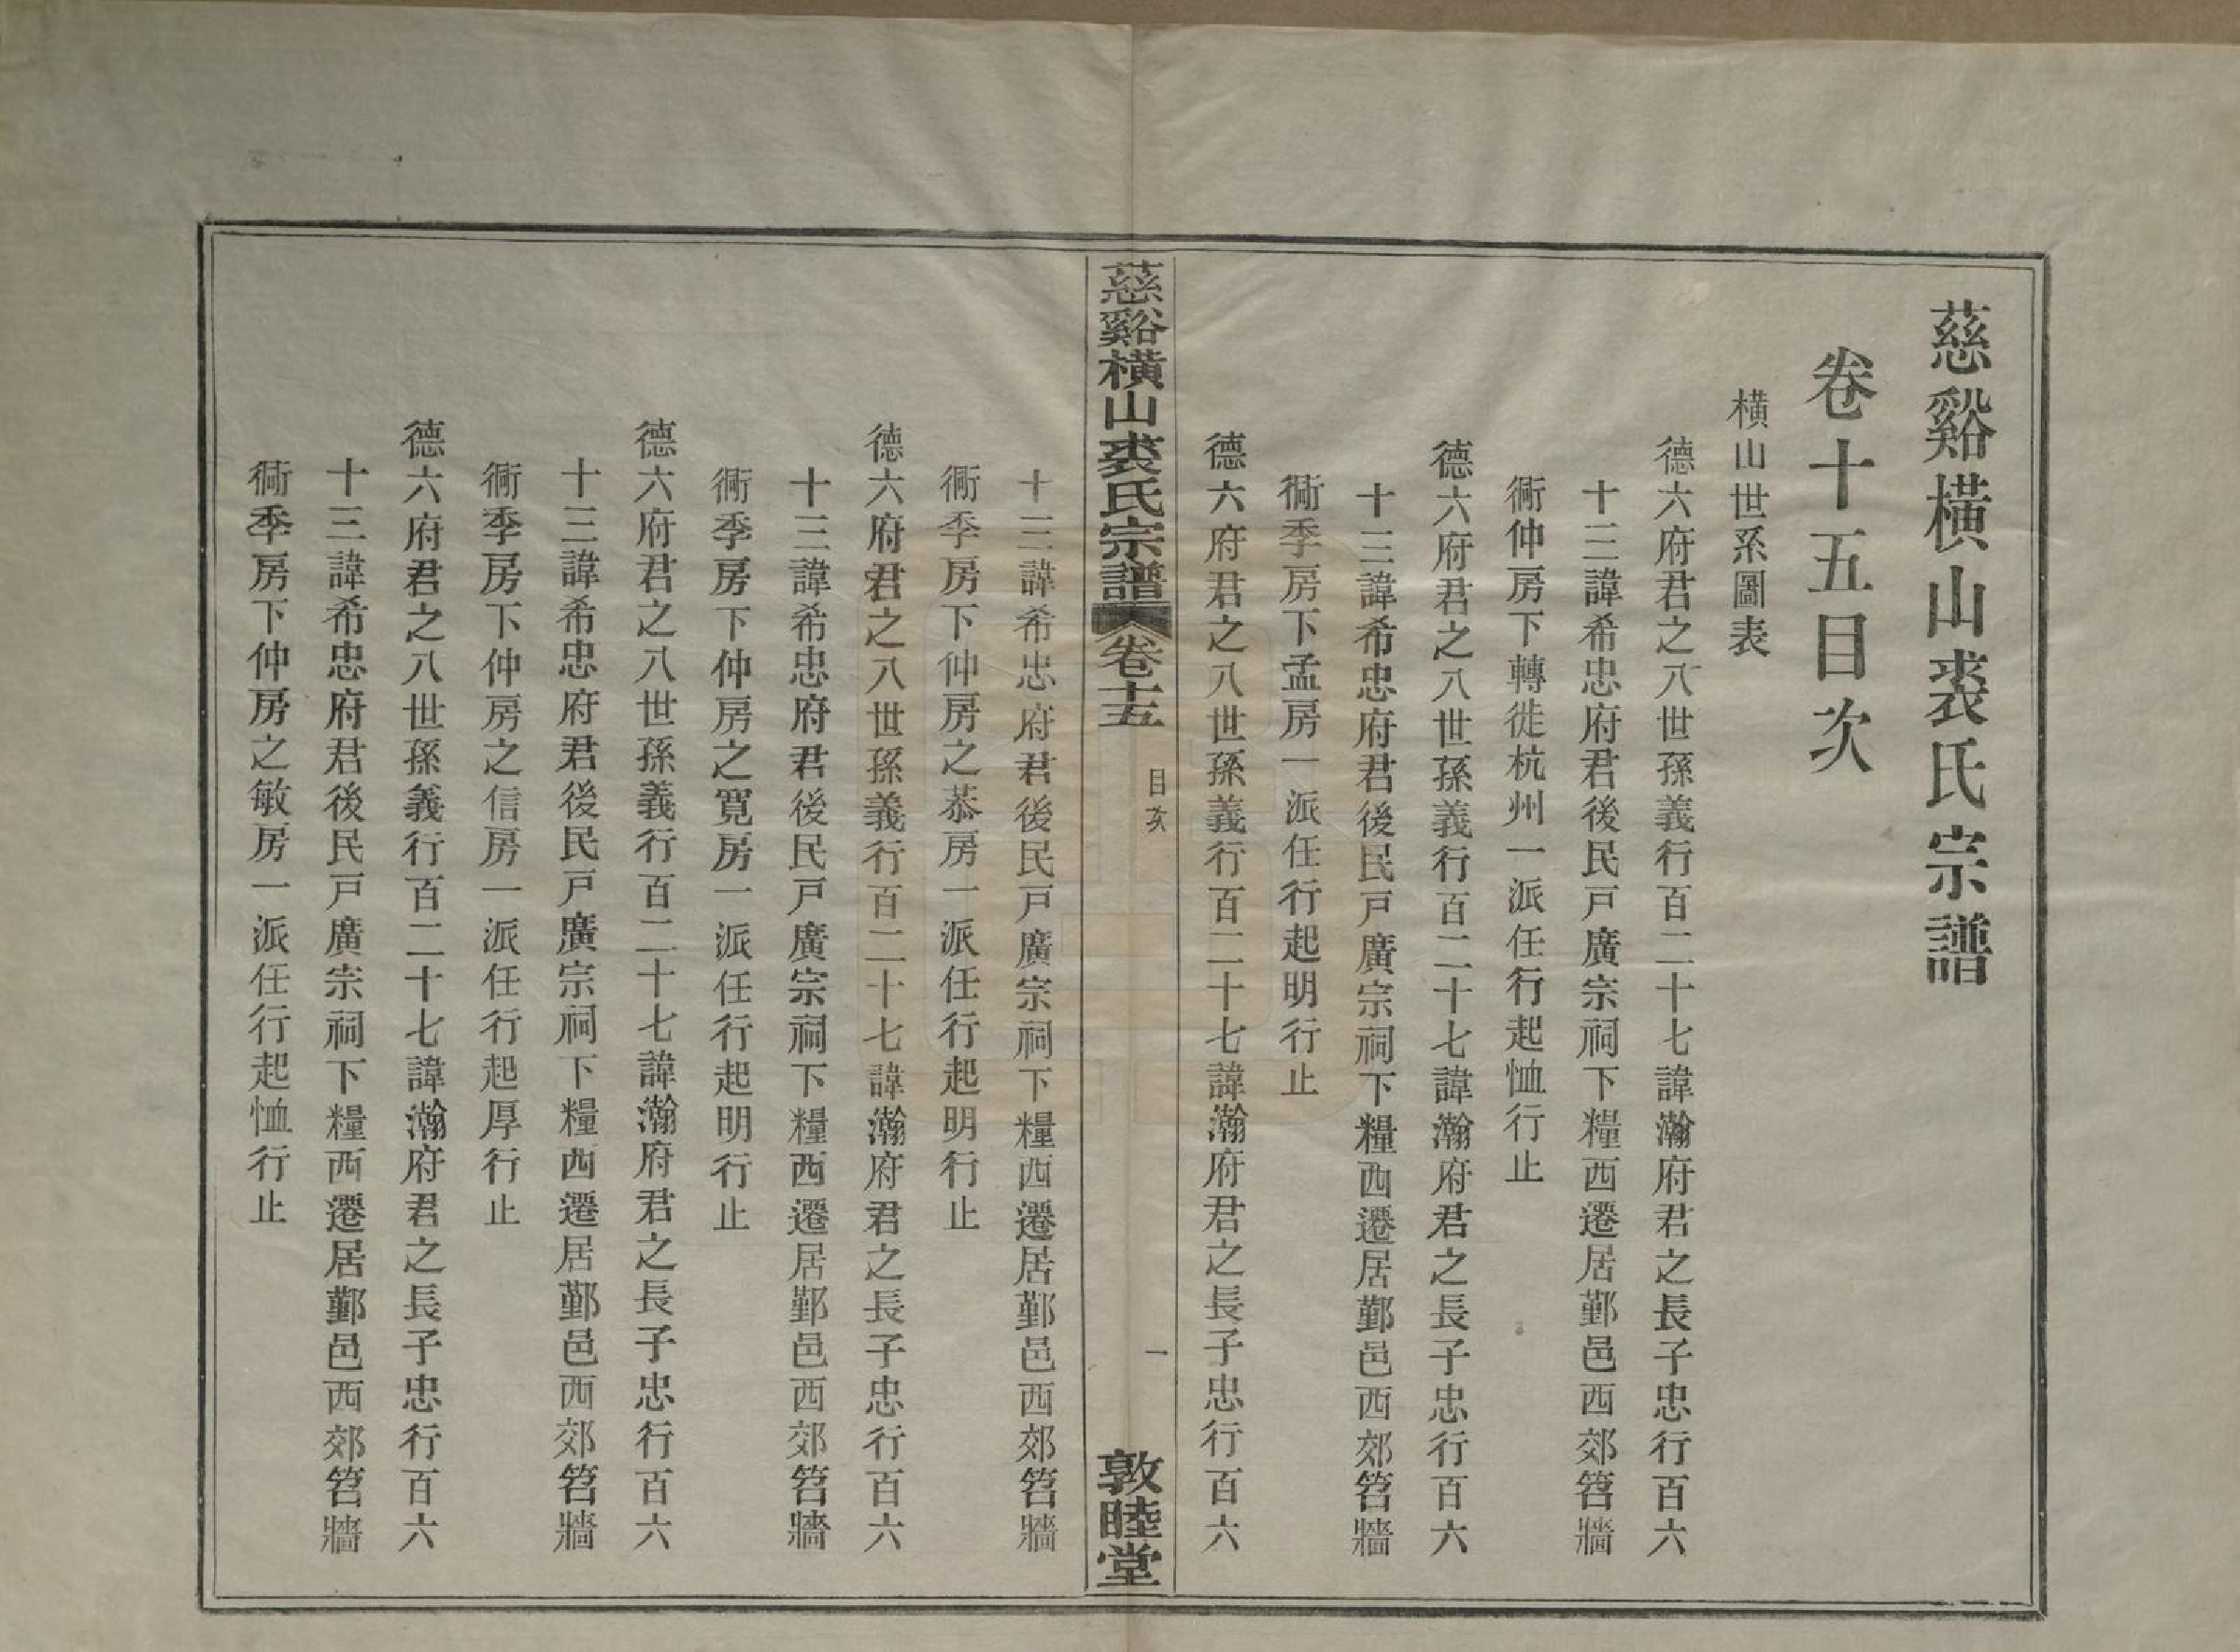 慈谿橫山裘氏宗譜
卷十五目次
橫山世系圖表
德六府君之八世孫義行百二十七諱瀚府君之長子忠行百六
十三諱希忠府君後民戸廣宗祠下糧西遷居鄞邑西郊笤牆
衕仲房下轉徙杭州一派任行起恤行止
德六府君之八世孫義行百二十七諱瀚府君之長子忠行百六
十三諱希忠府君後民戸廣宗祠下糧西遷居鄞邑西郊笤牆
衕季房下孟房一派任行起明行止
德六府君之八世孫義行百二十七諱瀚府君之長子忠行百六
慈谿橫山裘氏宗譜 卷十五 目次 一 敦睦堂
十三諱希忠府君後民戸廣宗祠下糧西遷居鄞邑西郊笤牆
衕季房下仲房之恭房一派任行起明行止
德六府君之八世孫義行百二十七諱瀚府君之長子忠行百六
十三諱希忠府君後民戸廣宗祠下糧西遷居鄞邑西郊笤牆
衕季房下仲房之寬房一派任行起明行止
德六府君之八世孫義行百二十七諱瀚府君之長子忠行百六
十三諱希忠府君後民戸廣宗祠下糧西遷居鄞邑西郊笤牆
衕季房下仲房之信房一派任行起厚行止
德六府君之八世孫義行百二十七諱瀚府君之長子忠行百六
十三諱希忠府君後民戸廣宗祠下糧西遷居鄞邑西郊笤牆
衕季房下仲房之敏房一派任行起恤行止